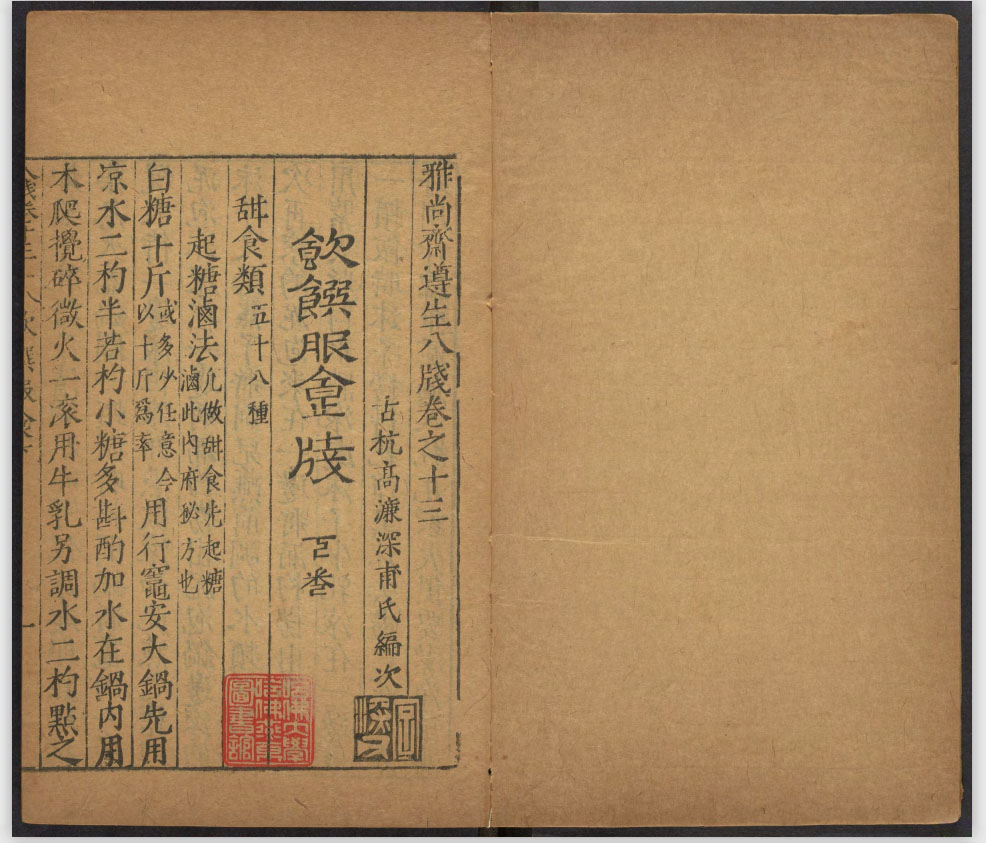 雅尚齋遵生八牋卷之十三
古杭高濂深甫氏編次
飲饌服食牋 下卷
甜食類 五十八種
起糖滷法 凡做甜食先起糖滷此內府秘方也
白糖十斤 或多少任意今以十斤爲率 用行竈安大鍋先用
凉水二杓半若杓小糖多斟酌加水在鍋內用
木爬攪碎微火一滚用牛乳另調水二杓點之
哈佛大學哈佛燕京圖書館